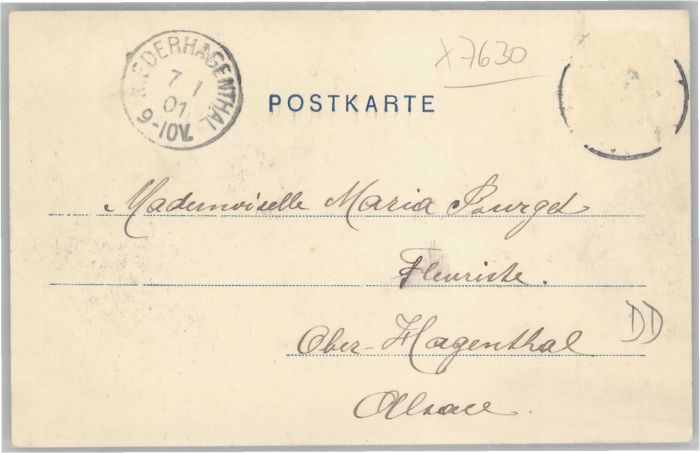 NIEDERHAGENTHAL
7 1
01
9-10V.
X7630
POSTKARTE
Mademoiselle Maria Pourget
Fleuriste.
Ober-Hagenthal
DD
Alsace.